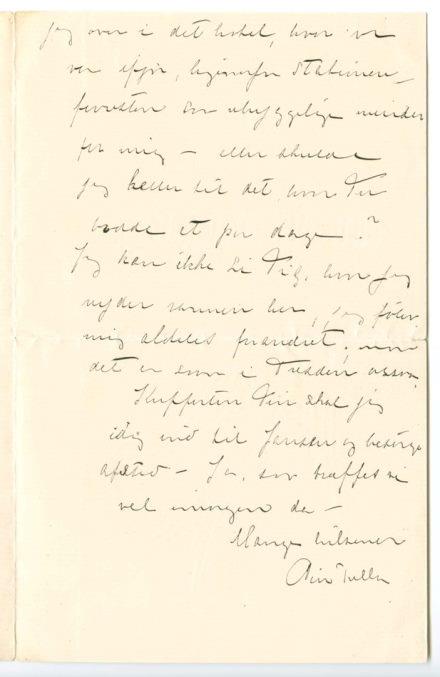 jeg over i det hotel, hvor vi
var ifjor, ligeoverfor Stationen,
forresten saa uhyggelige minder
for mig – eller skulde
jeg heller til det, hvor Du
bodde et par dage?
Jeg kan ikke si Dig, hvor jeg
nyder varmen her, jeg føler
mig aldeles forandret;
det er som i Dresden ogsaa.
Kufferten Din skal jeg
idag ind til Jansen og besørge
afsted – Ja, saa træffes vi
vel imorgen da –
Mange hilsener
Din Tulla